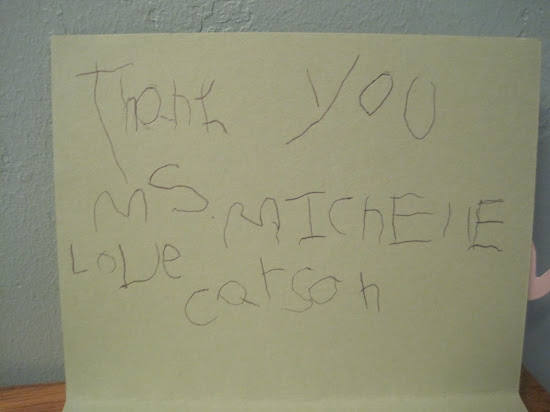 Thank YOU
MS. MIChEllE
LOVe
carson